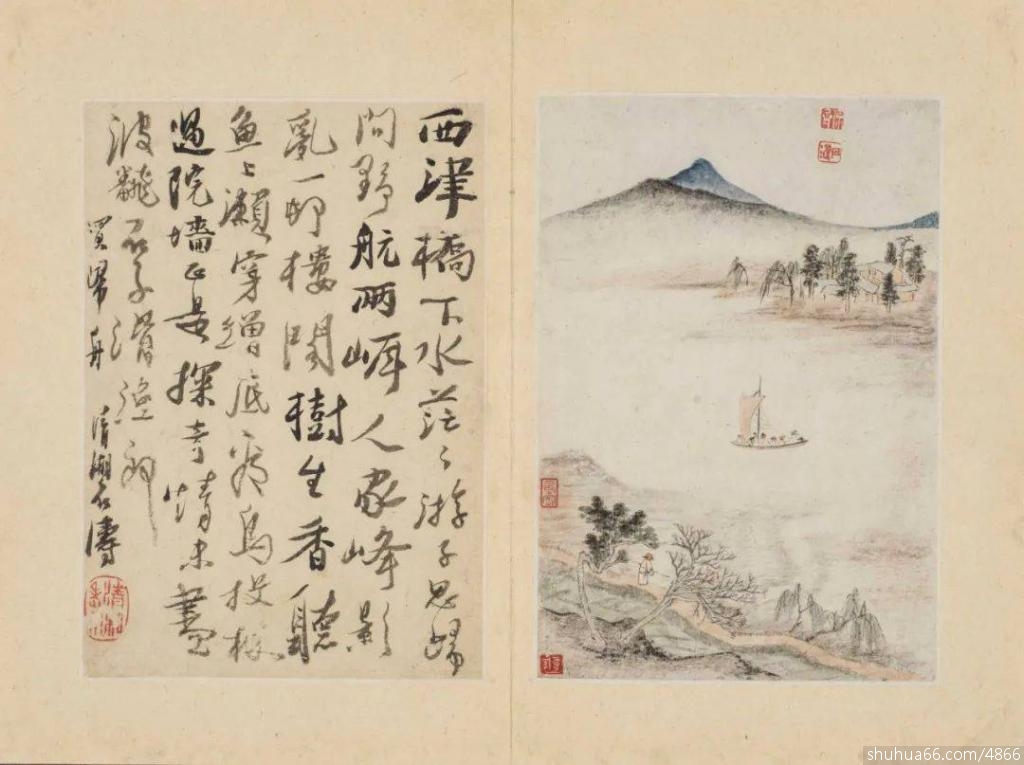 西津橋下水茫〻游子思歸
問野航兩崕人家峰影
亂一邨樓閣樹生香聽
魚上瀨穿繒底看鳥投林
過院墻正是探奇情未盡
波飜石子滑
清湘石濤
shuhua66.com/4866